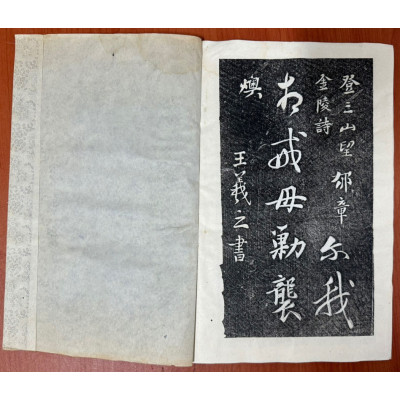 登三山望
金陵詩
章尔我
相戒毋勦襲
燠
王羲之書